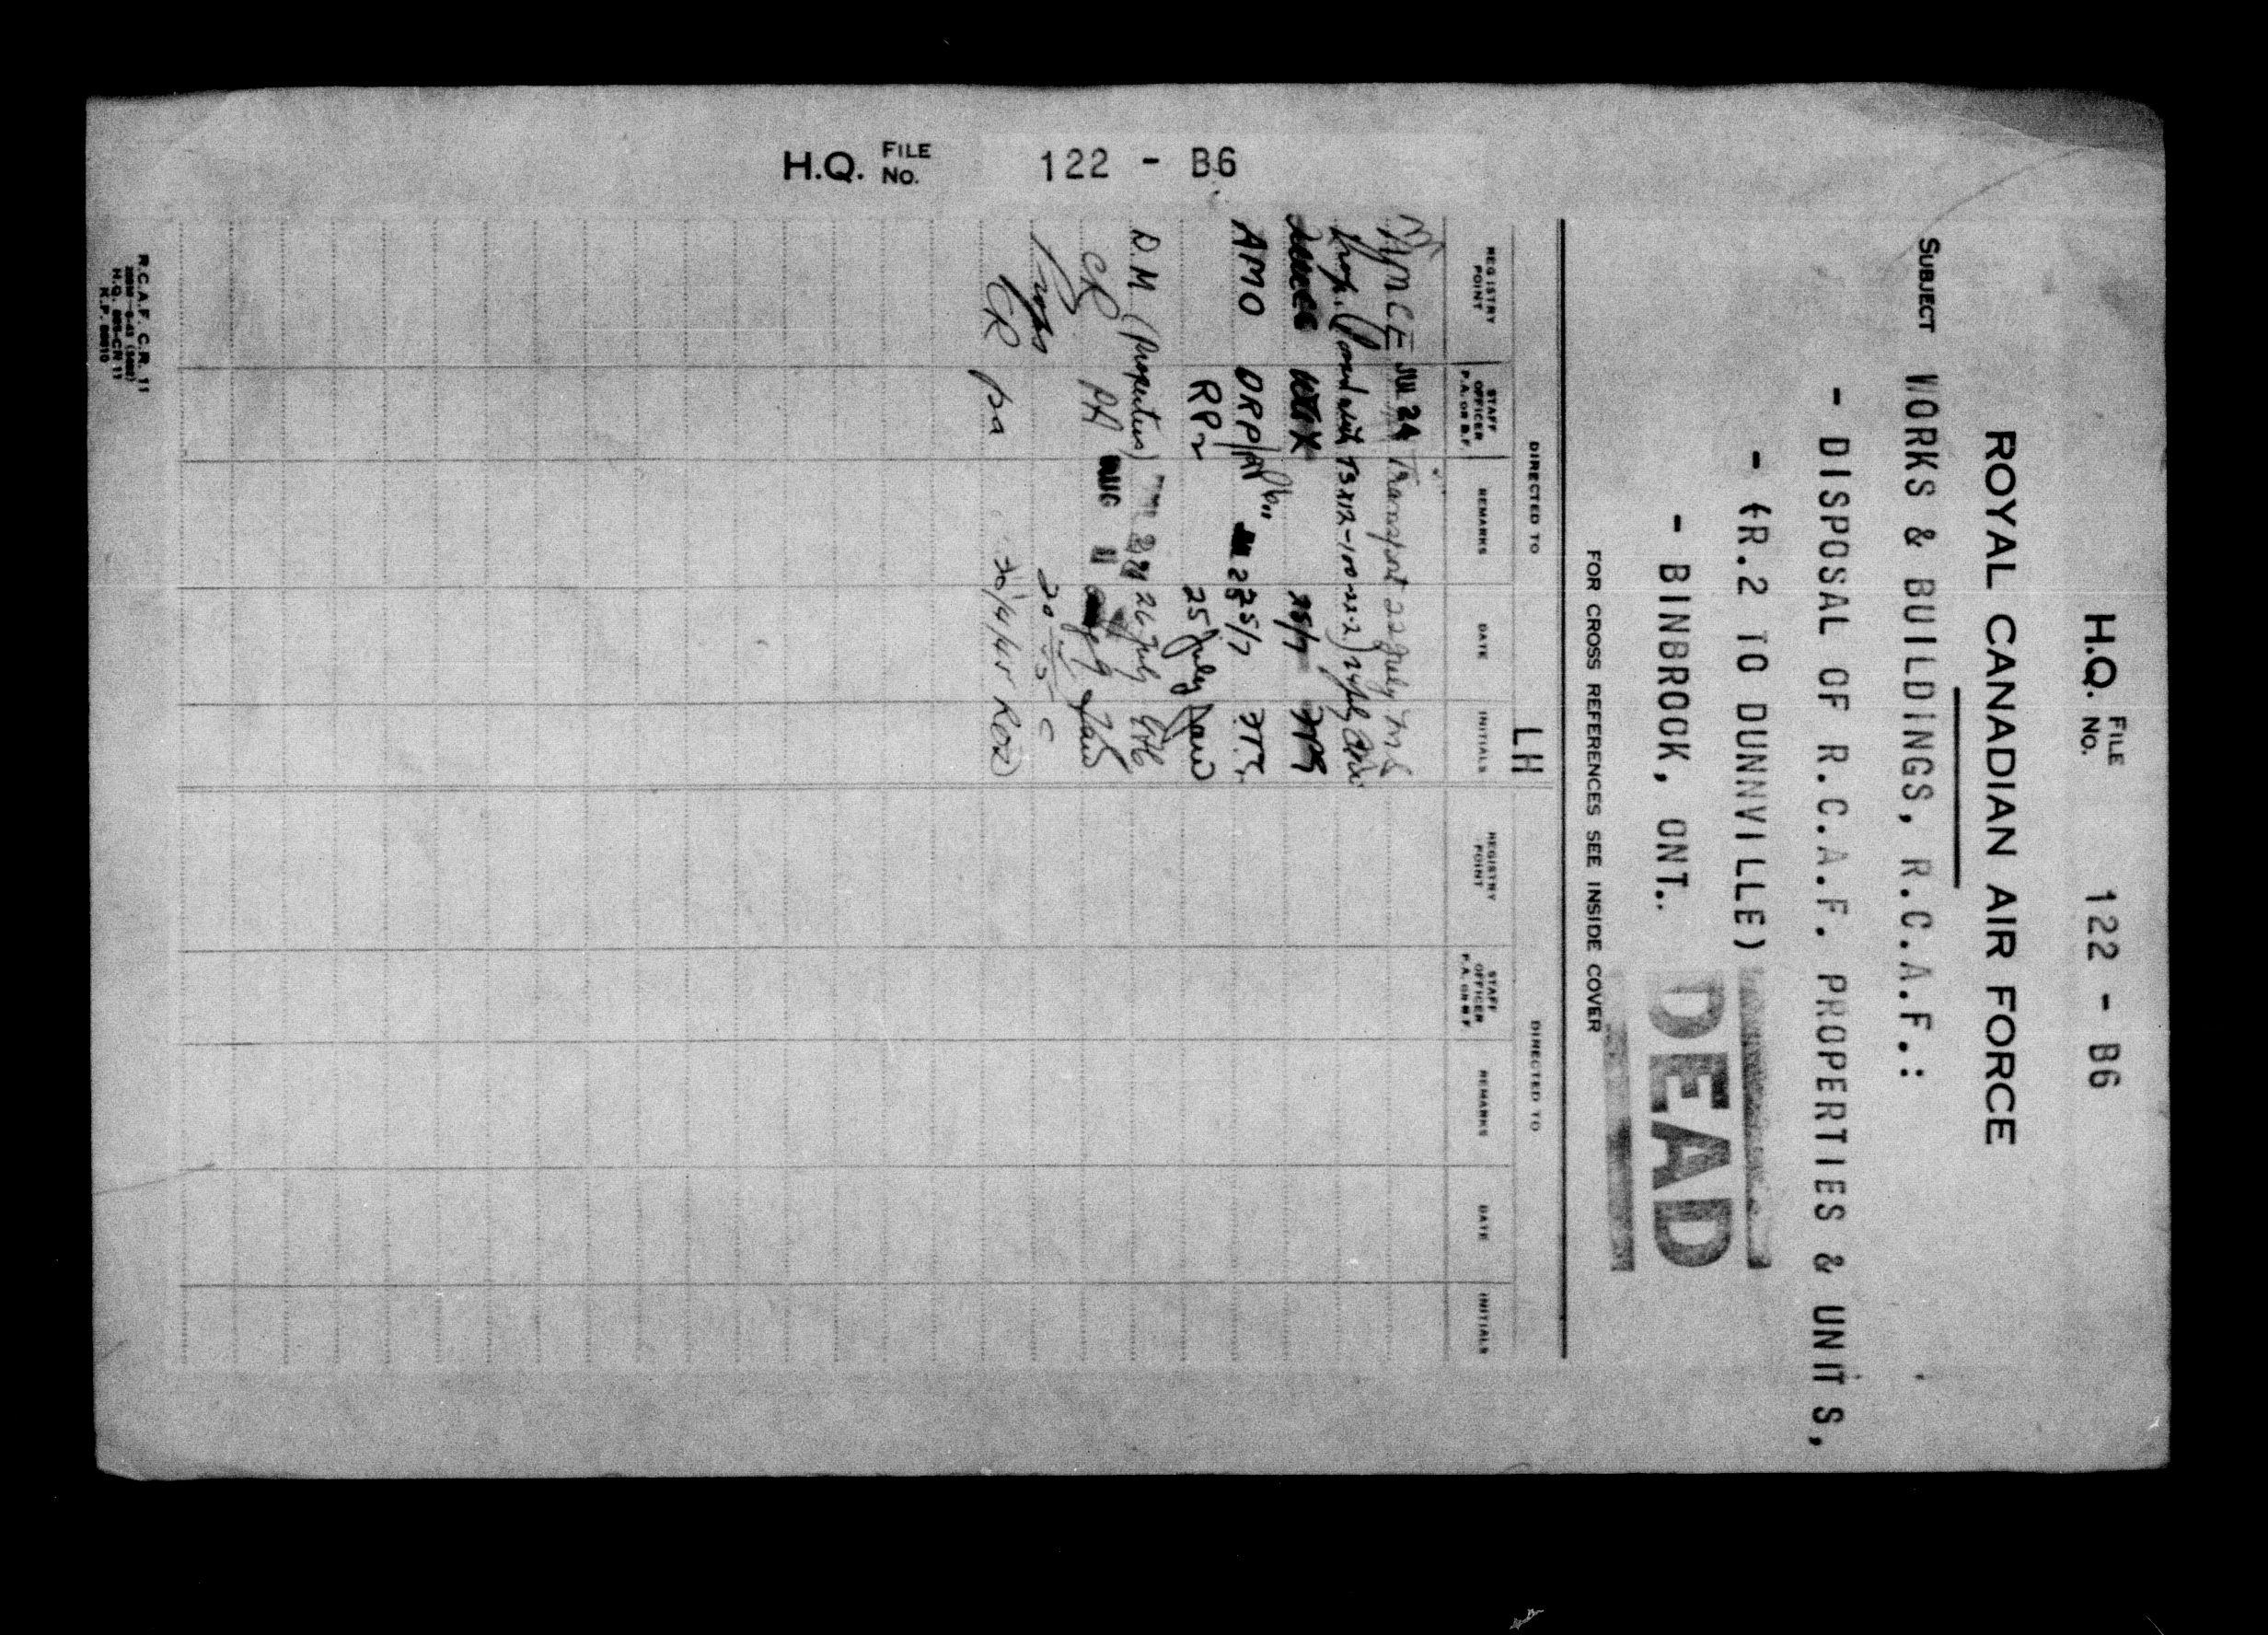 H.Q. FILE No. 122 - B6
ROYAL CANADIAN AIR FORCE
SUBJECT WORKS & BUILDINGS, R.C.A.F.:
- DISPOSAL OF R.C.A.F. PROPERTIES & UNITS,
- (R.2 TO DUNNVILLE)
- BINBROOK, ONT.
DEAD
FOR CROSS REFERENCES SEE INSIDE COVER
LH
DIRECTED TO DIRECTED TO
REGISTRY POINT STAFF OFFICER P.A. OR B.F. REMARKS DATE INITIALS REGISTRY POINT STAFF OFFICER P.A. OR B.F. REMARKS DATE INITIALS
AMCE 24 Transport 22 July
24 July
25/7
AMO DRP 25/7
RP2 25 July
D.M (Properties) 26 July
CR PA AUG
Props 20
CR pa 30/4/45
H.Q. FILE No. 122 - B6
R.C.A.F. C.R. 11